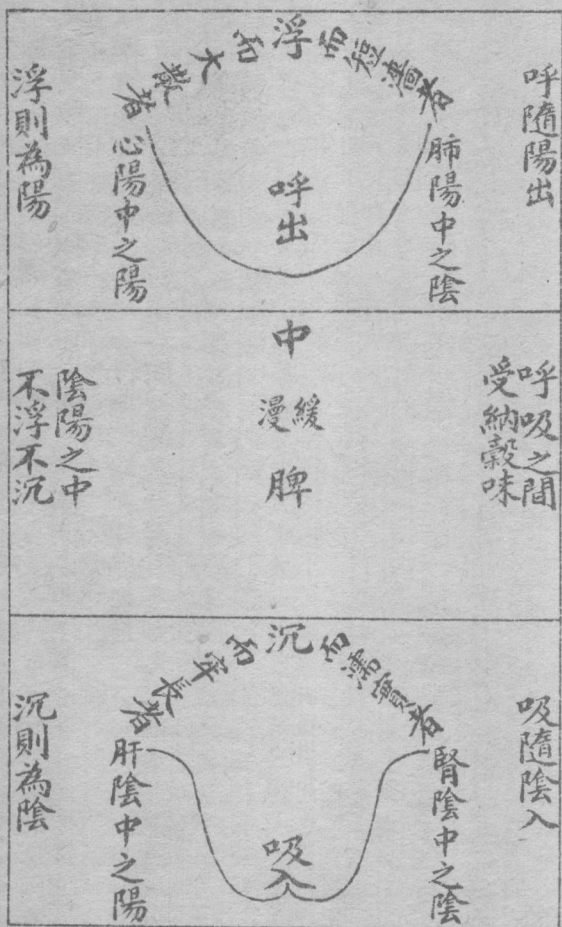 呼隨陽出
浮而短濇者
肺陽中之陰
呼出
浮而大散者
心陽中之陽
浮則為陽
呼吸之間
受納穀味
中
緩
漫
脾
陰陽之中
不浮不沉
吸隨陰入
沉而濡實者
腎陰中之陰
吸入
沉而牢長者
肝陰中之陽
沉則為陰